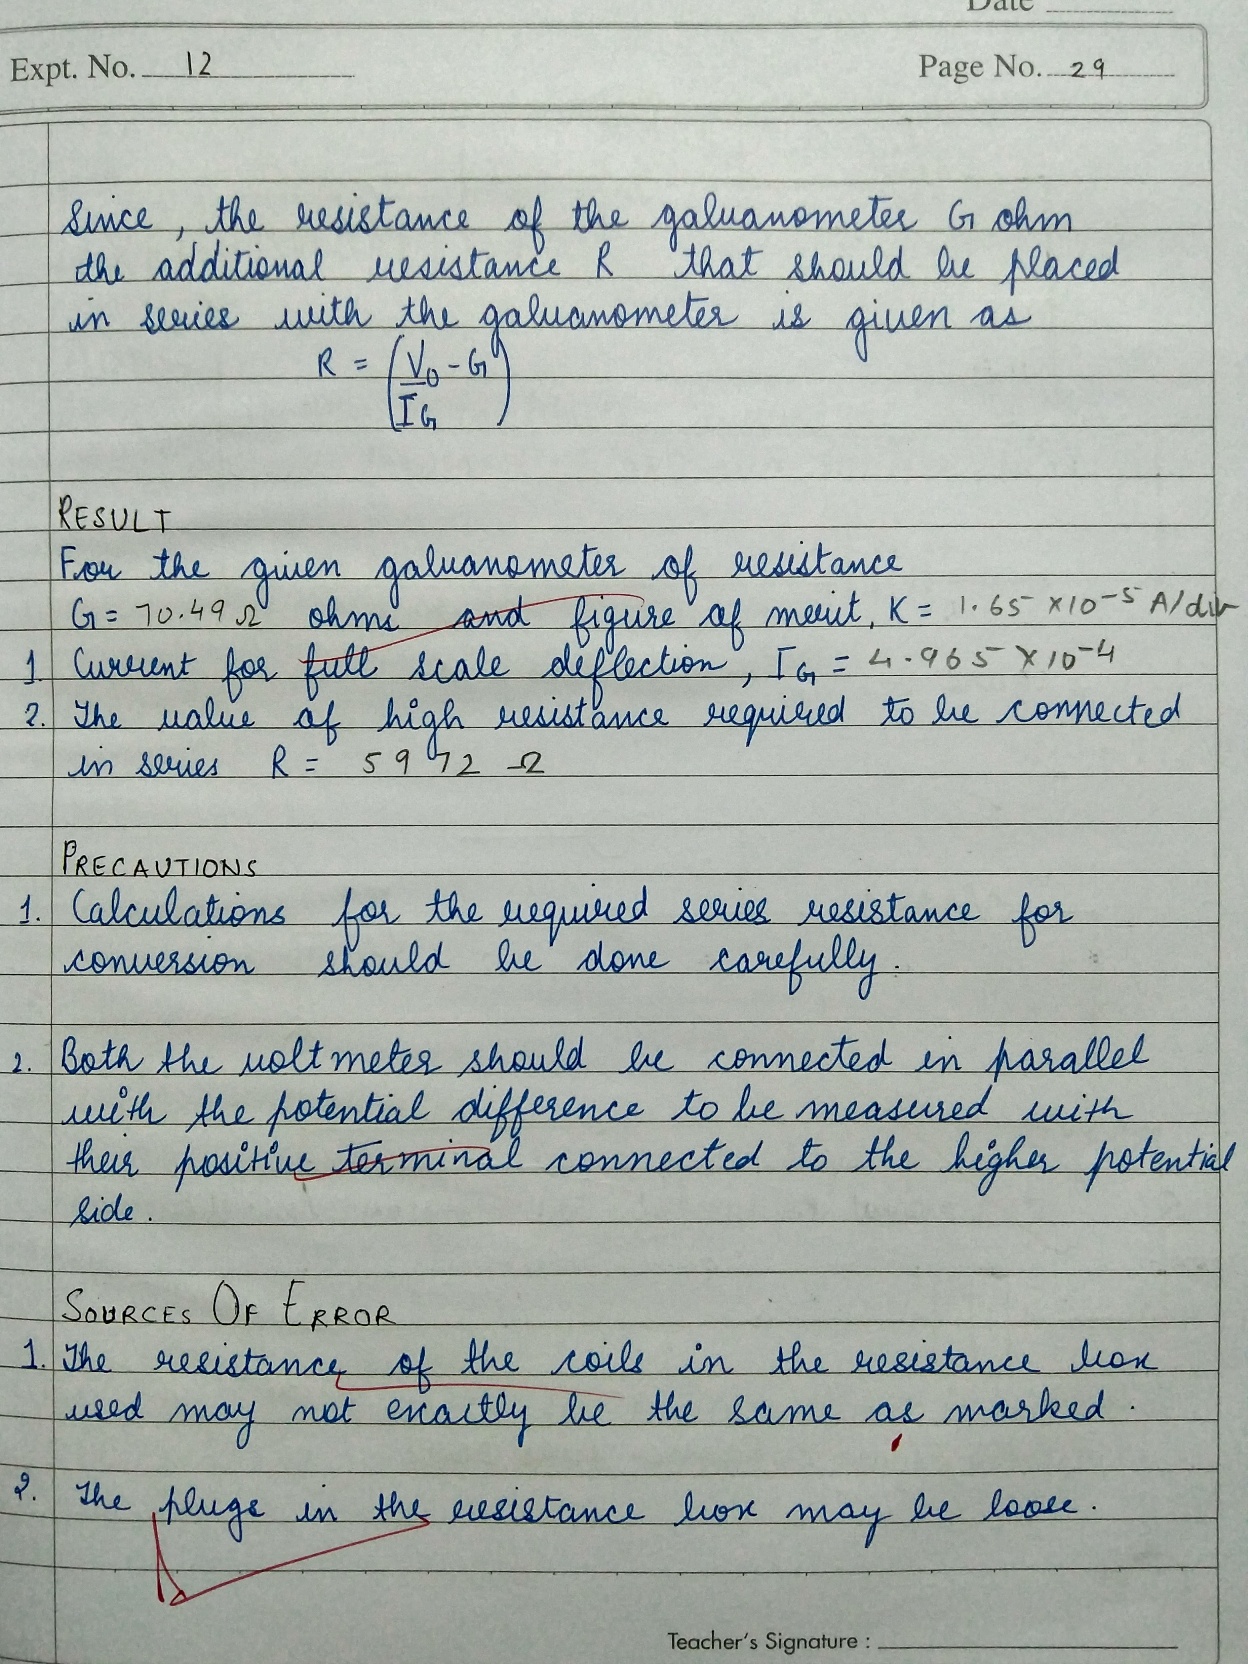 Date
Expt. No. 12
Page No. 29
Since, the resistance of the galvanometer G ohm
the additional resistance R that should be placed
in series with the galvanometer is given as
R = (V₀/I_G - G)
RESULT
For the given galvanometer of resistance
G = 70.49 Ω ohms and figure of merit, K = 1.65 × 10⁻⁵ A/div
1. Current for full scale deflection, I_G = 4.965 × 10⁻⁴
2. The value of high resistance required to be connected
in series R = 5972 Ω
PRECAUTIONS
1. Calculations for the required series resistance for
conversion should be done carefully.
2. Both the voltmeter should be connected in parallel
with the potential difference to be measured with
their positive terminal connected to the higher potential
side.
SOURCES OF ERROR
1. The resistance of the coils in the resistance box
used may not exactly be the same as marked.
2. The plugs in the resistance box may be loose.
Teacher's Signature :